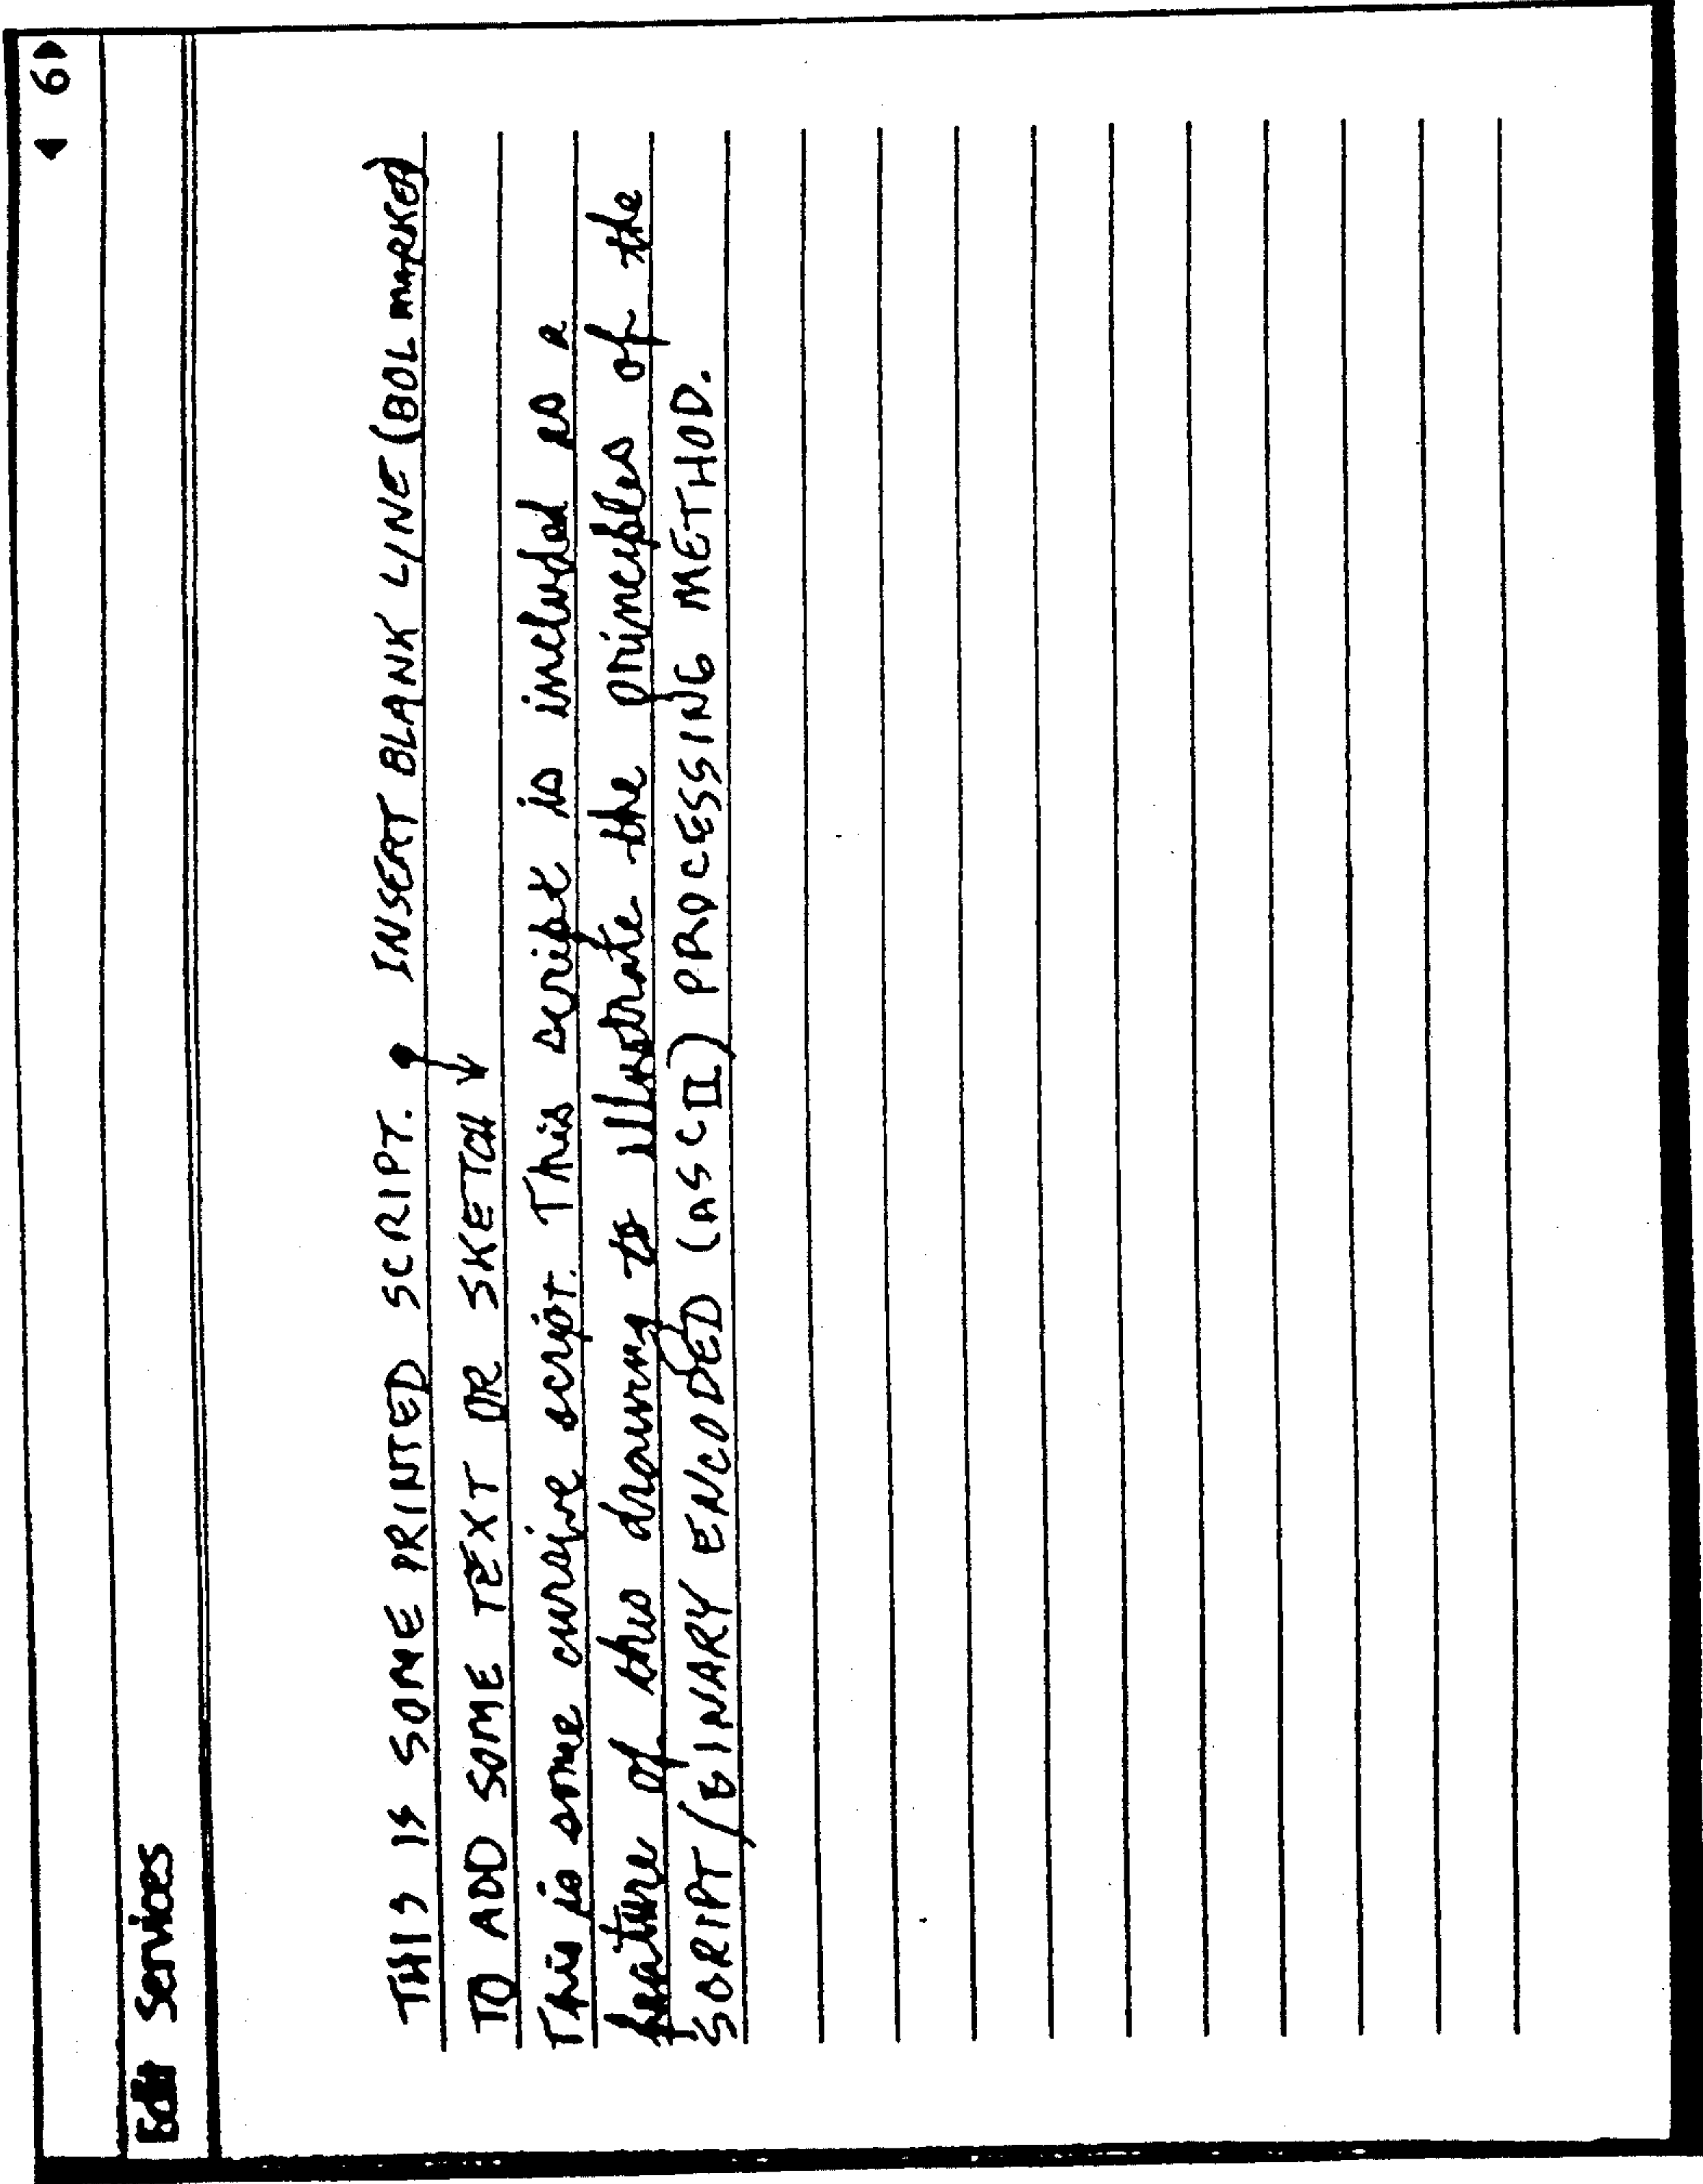 6
Edit Services
THIS IS SOME PRINTED SCRIPT. INSERT BLANK LINE (BOL MARKED)
TO ADD SOME TEXT OR SKETCH
This is some cursive script. This script is included as a
feature of this drawing to illustrate the principles of the
SCRIPT/BINARY ENCODED (ASCII) PROCESSING METHOD.